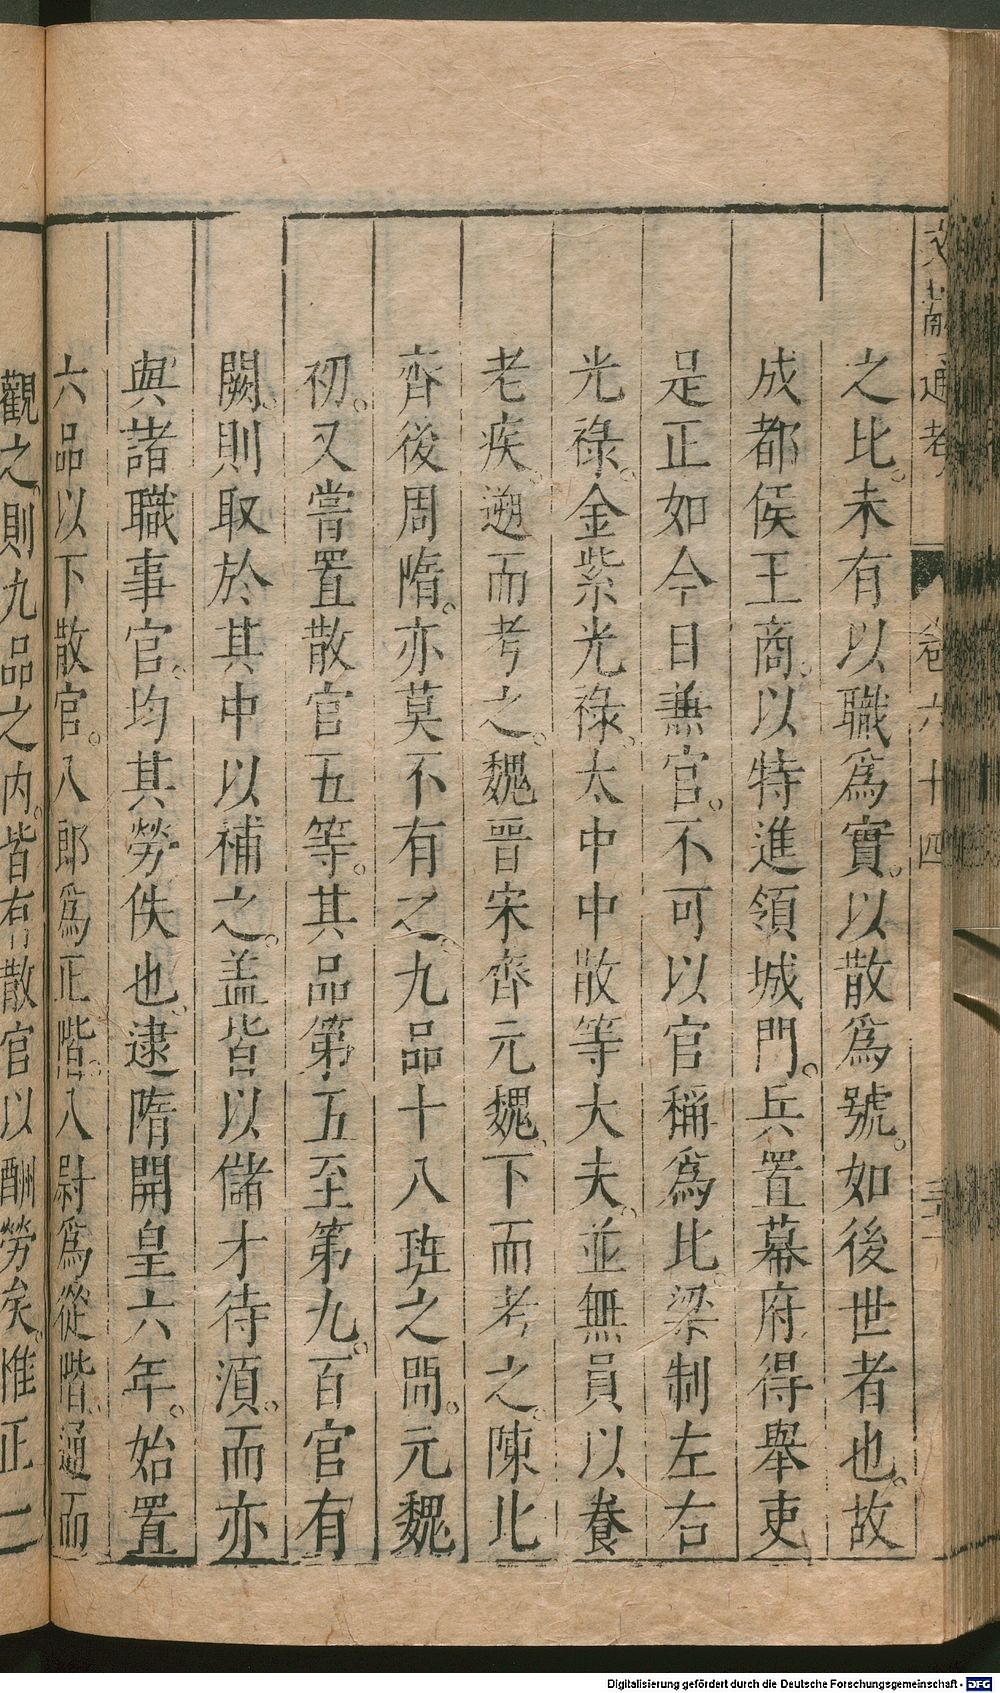 文獻通考 卷六十四
之比。未有以職爲實。以散爲號。如後世者也。故
成都侯王商。以特進領城門。兵置幕府得舉吏
是正如今日兼官。不可以官稱爲比。梁制左右
光祿。金紫光祿。太中中散等大夫。並無員以養
老疾。遡而考之。魏晋宋齊元魏。下而考之。陳北
齊後周隋。亦莫不有之。九品十八班之間。元魏
初。又嘗置散官五等。其品第五至第九。百官有
闕。則取於其中以補之。盖皆以儲才待湏。而亦
與諸職事官。均其勞佚也。逮隋開皇六年。始置
六品以下散官。八郎爲正階。八尉爲從階。通而
觀之。則九品之内。皆有散官以酬勞矣。惟正一
Digitalisierung gefördert durch die Deutsche Forschungsgemeinschaft - DFG